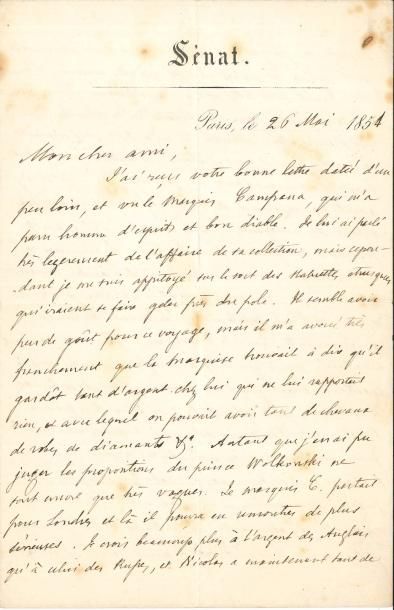 Sénat.
Paris, le 26 Mai 1854
Mon cher ami,
J'ai reçu votre bonne lettre datée d'un
peu loin, et vu le Marquis Campana, qui m'a
paru homme d'esprits et bon diable. Je lui ai parlé
très legerement de l'affaire de sa collection, mais cepen-
dant je me suis appitoyé sur le sort des statuettes étrusques
qui iraient se faire geler près du pole. Il semble avoir
peu de goût pour ce voyage, mais il m'a avoué très
franchement que la marquise trouvait à dire qu'il
gardât tant d'argent chez lui qui ne lui rapportait
rien, et avec lequel on pouvait avoir tant de chevaux
de robes de diamants &a. Autant que j'en ai pu
juger les propositions du prince Wolkonski ne
sont encore que très vagues. Le marquis C. partait
pour Londres et là il pourra en de plus
sérieuses. Je crois beaucoup plus à l'argent des Anglais
qu'à celui des Russes, et Nicolas a maintenant tant de